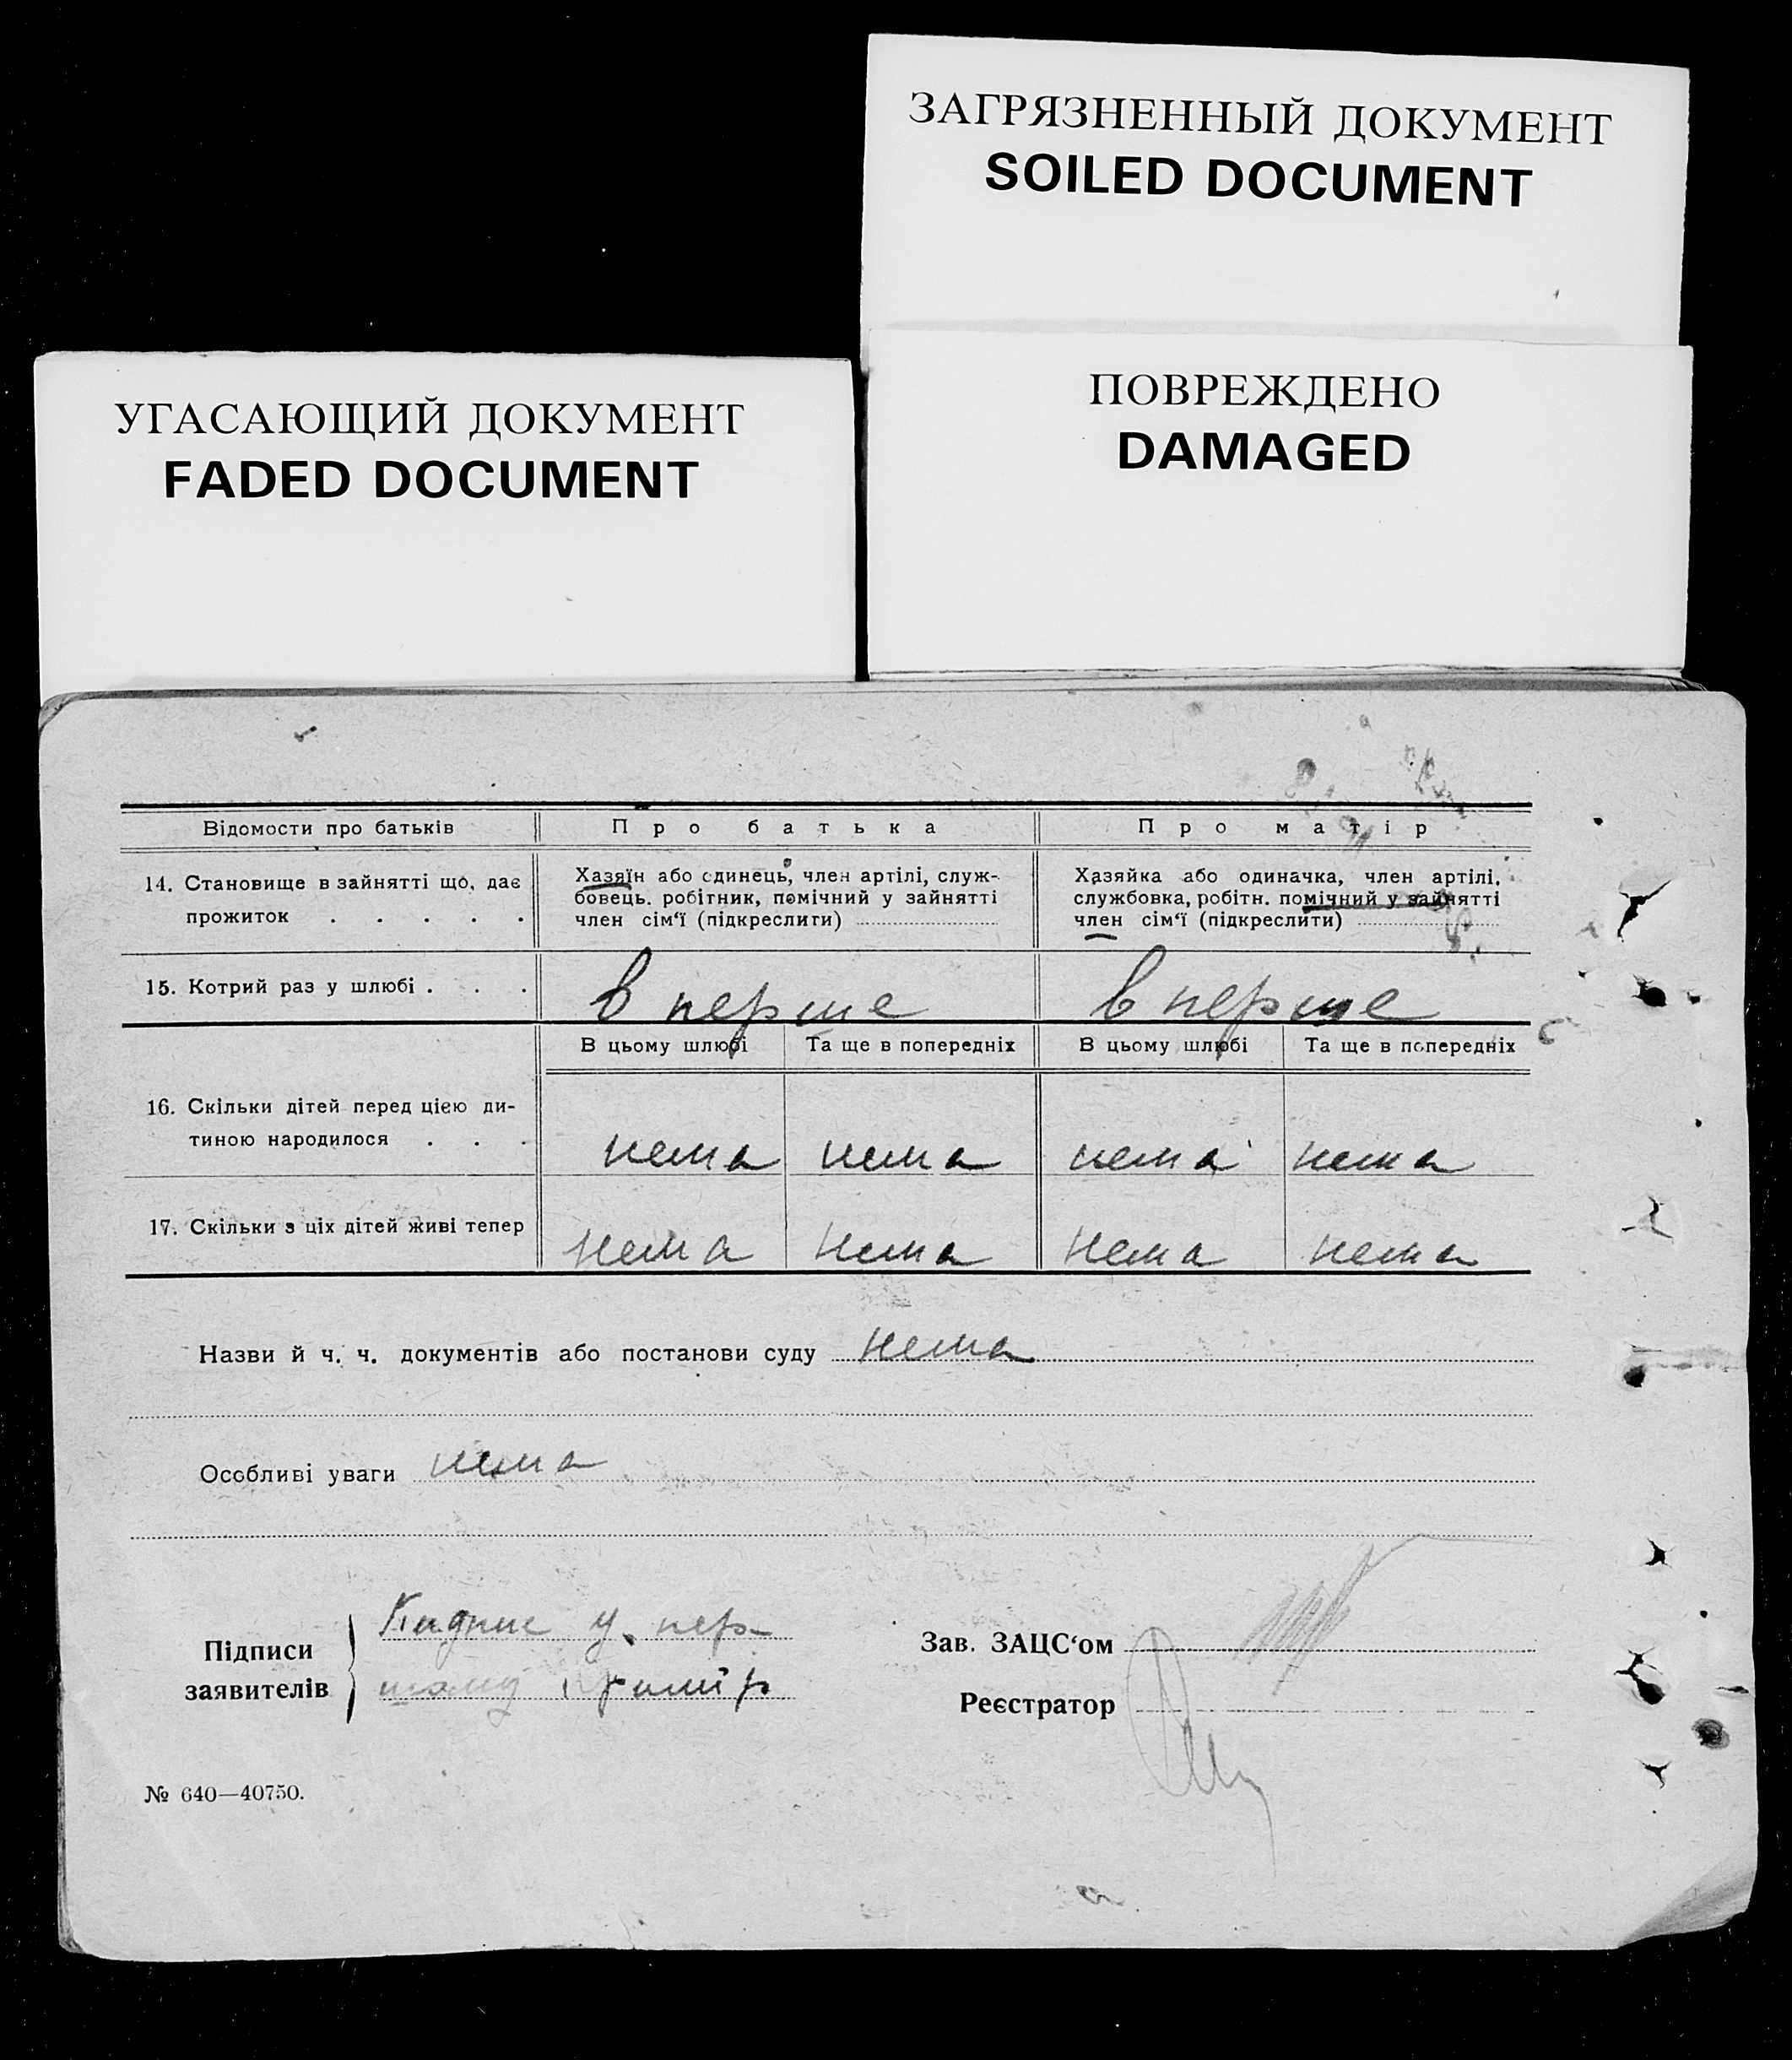 ЗАГРЯЗНЕННЫЙ ДОКУМЕНТ
SOILED DOCUMENT
УГАСАЮЩИЙ ДОКУМЕНТ
FADED DOCUMENT
ПОВРЕЖДЕНО
DAMAGED
Відомости про батьків Про батька Про матір
14. Становище в зайнятті що, дає прожиток . . . . .
Хазяїн або одинець, член артілі, служ-
бовець. робітник, помічний у зайнятті
член сім‘ї (підкреслити)
Хазяйка або одиначка, член артілі,
службовка, робітн. помічний у зайнятті
член сім‘ї (підкреслити)
15. Котрий раз у шлюбі . . . в перше в перше
В цьому шлюбі Та ще в попередніх В цьому шлюбі Та ще в попередніх
16. Скільки дітей перед цією ди-
тиною народилося . . . нема нема нема нема
17. Скільки з ціх дітей живі тепер нема нема нема нема
Назви й ч. ч. документів або постанови суду нема
Особливі уваги нема
Підписи
заявителів
Підпис у пер-
шому
Зав. ЗАЦС‘ом
Реєстратор
№ 640—40750.